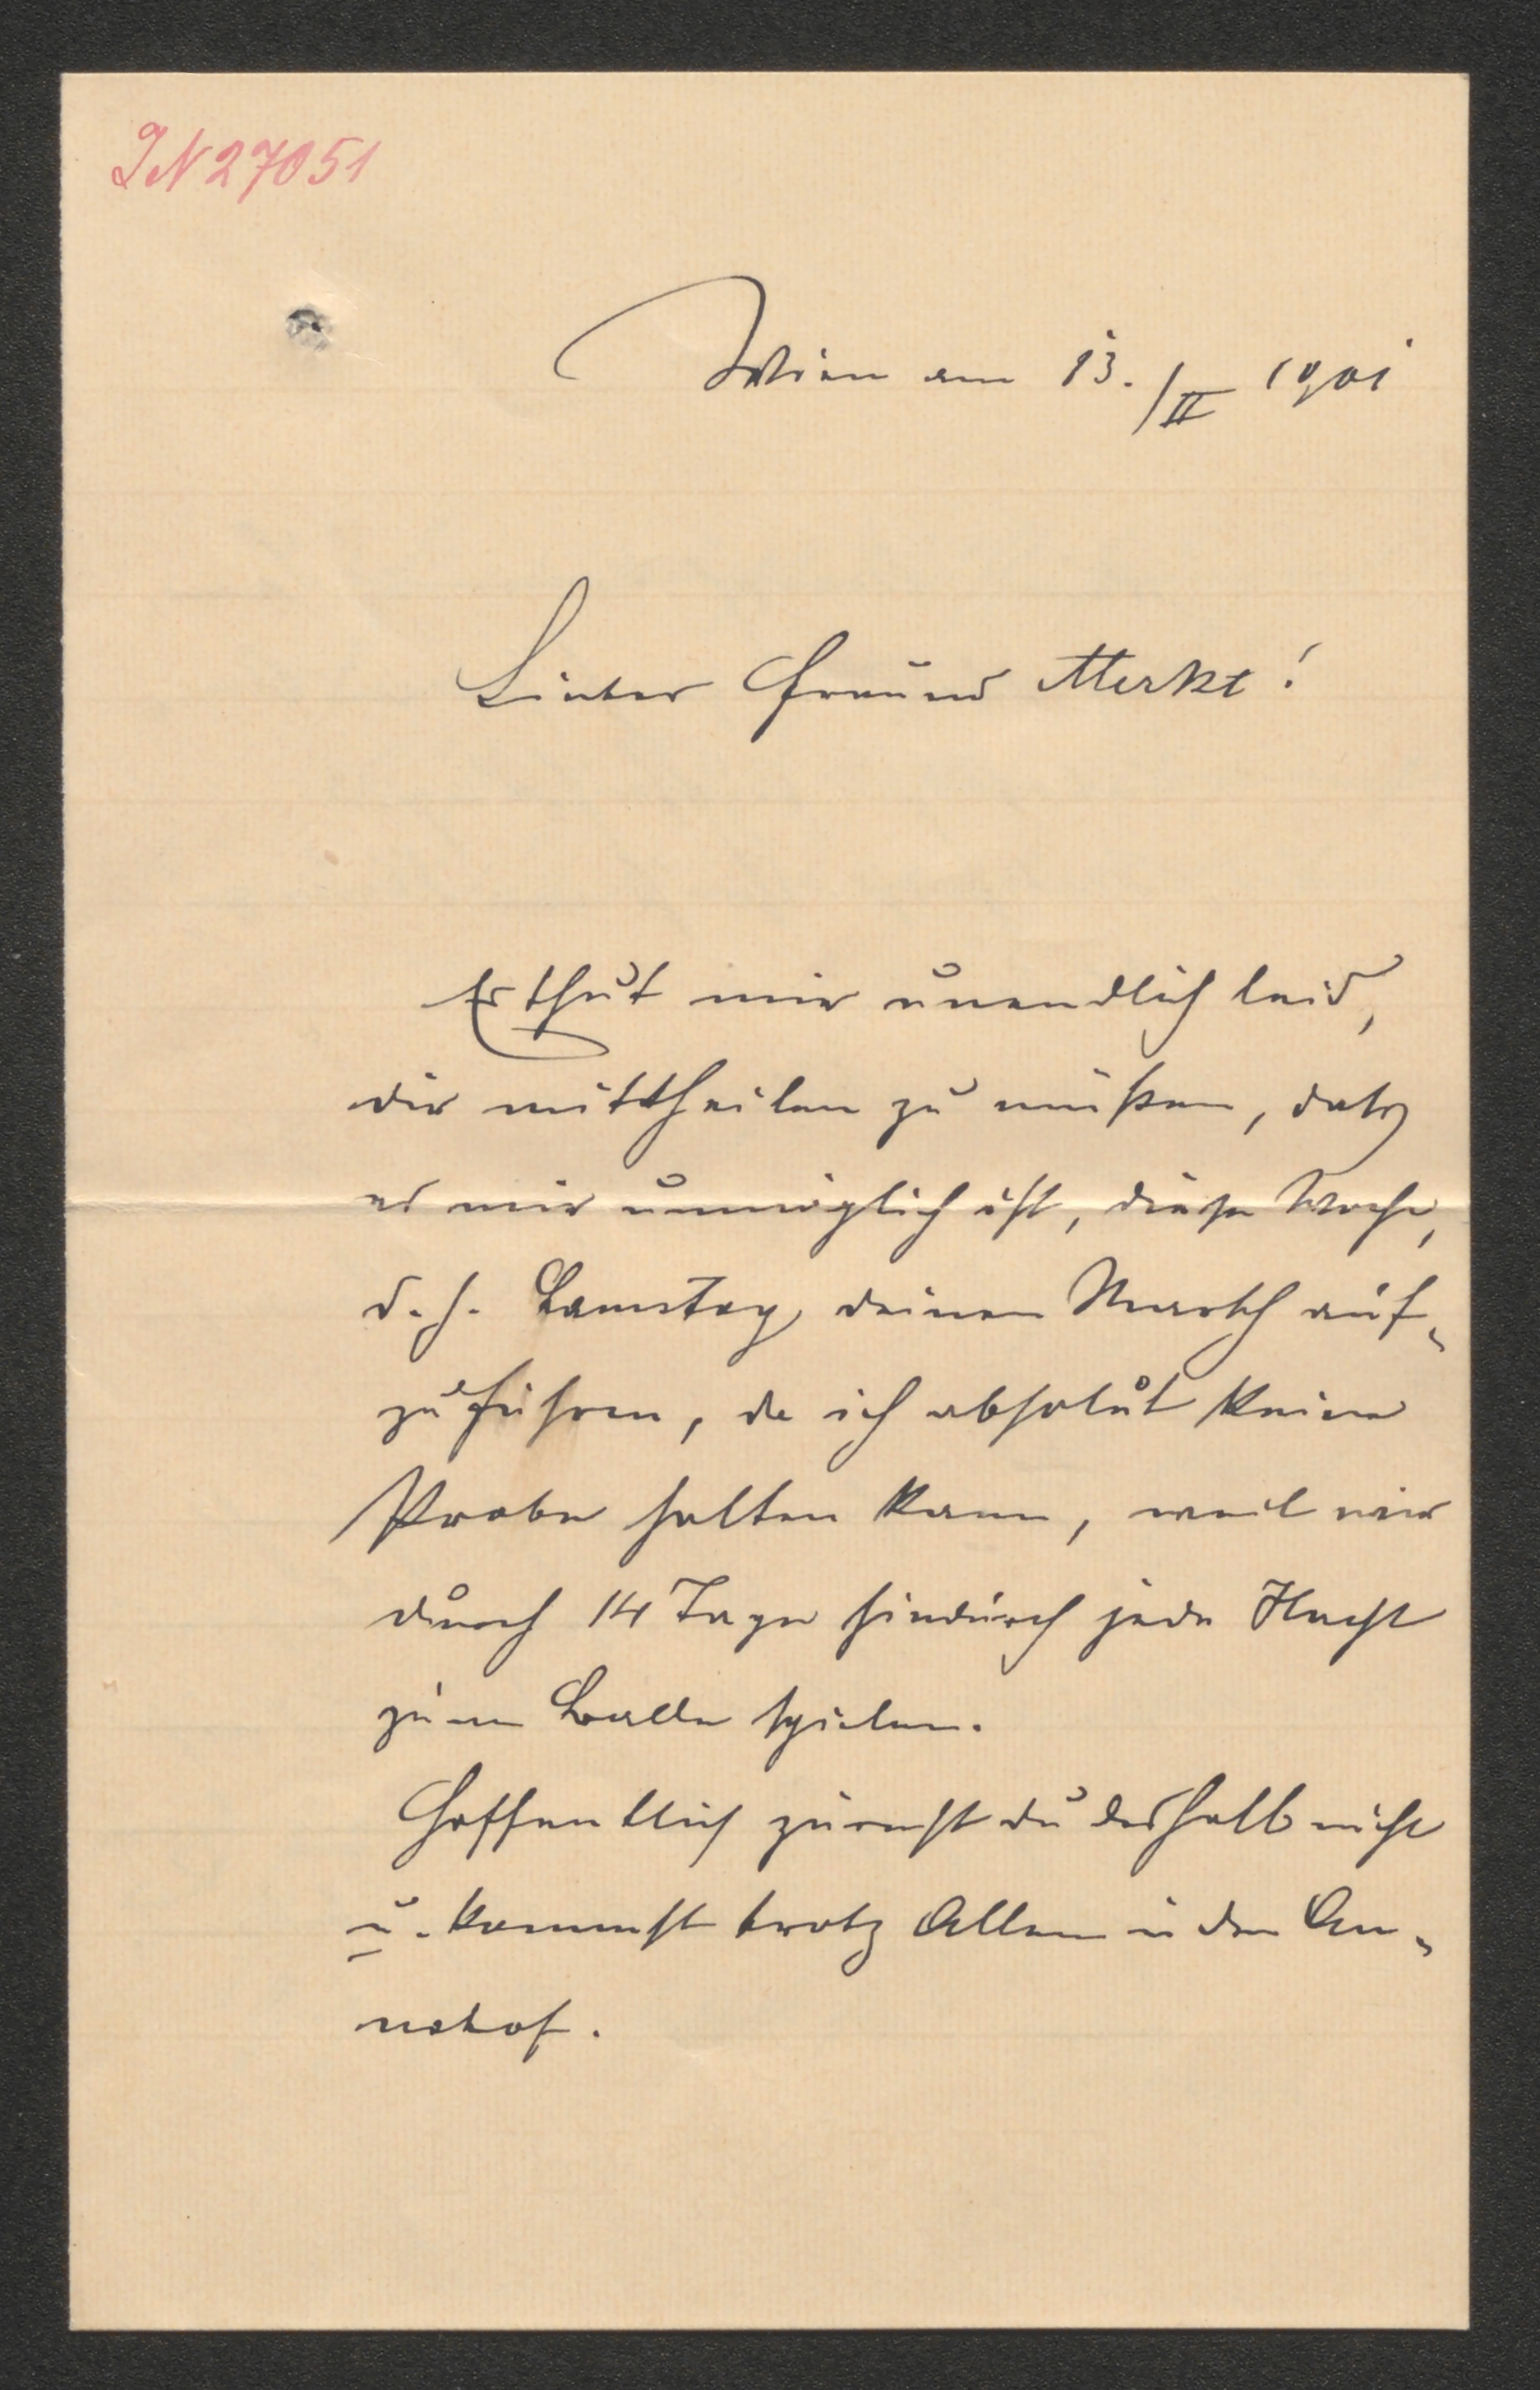 IN 27051
Wien am 13./II 1901
Lieber Freund Merkt!
Es thut mir unendlich leid,
dir mittheilen zu müßen, daß
es mir unmöglich ist, diese Woche,
d. h. Samstag deinen Marsch auf-
zuführen, da ich absolut keine
Probe halten kann, weil wir
durch 14 Tage hindurch jede Nacht
zu einem Balle spielen.
Hoffentlich zürnst du deshalb nicht
u. kommst trotz Allem in den An-
nahof.